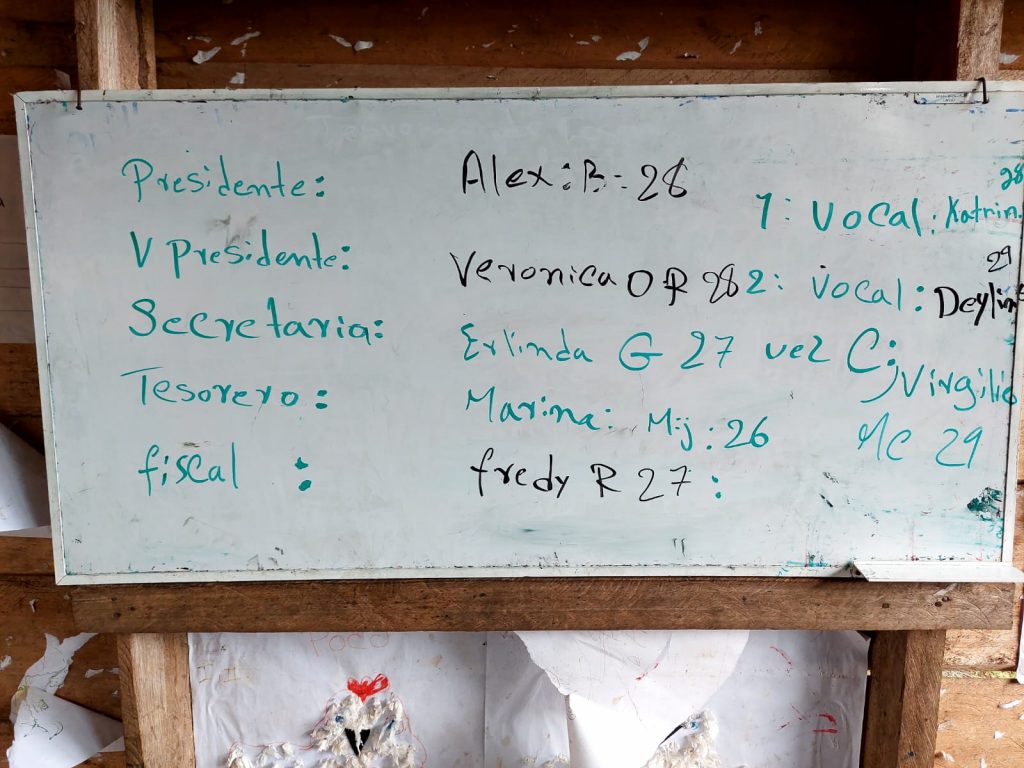 Presidente: Alex: B- 28
V Presidente: Veronica O R 28
Secretaria: Erlinda G 27
Tesorero: Marina: M:j: 26
fiscal : fredy R 27:
28
1: Vocal: Katrin.
29
2: Vocal: Deylin
vez C; Virgilio
MC 29